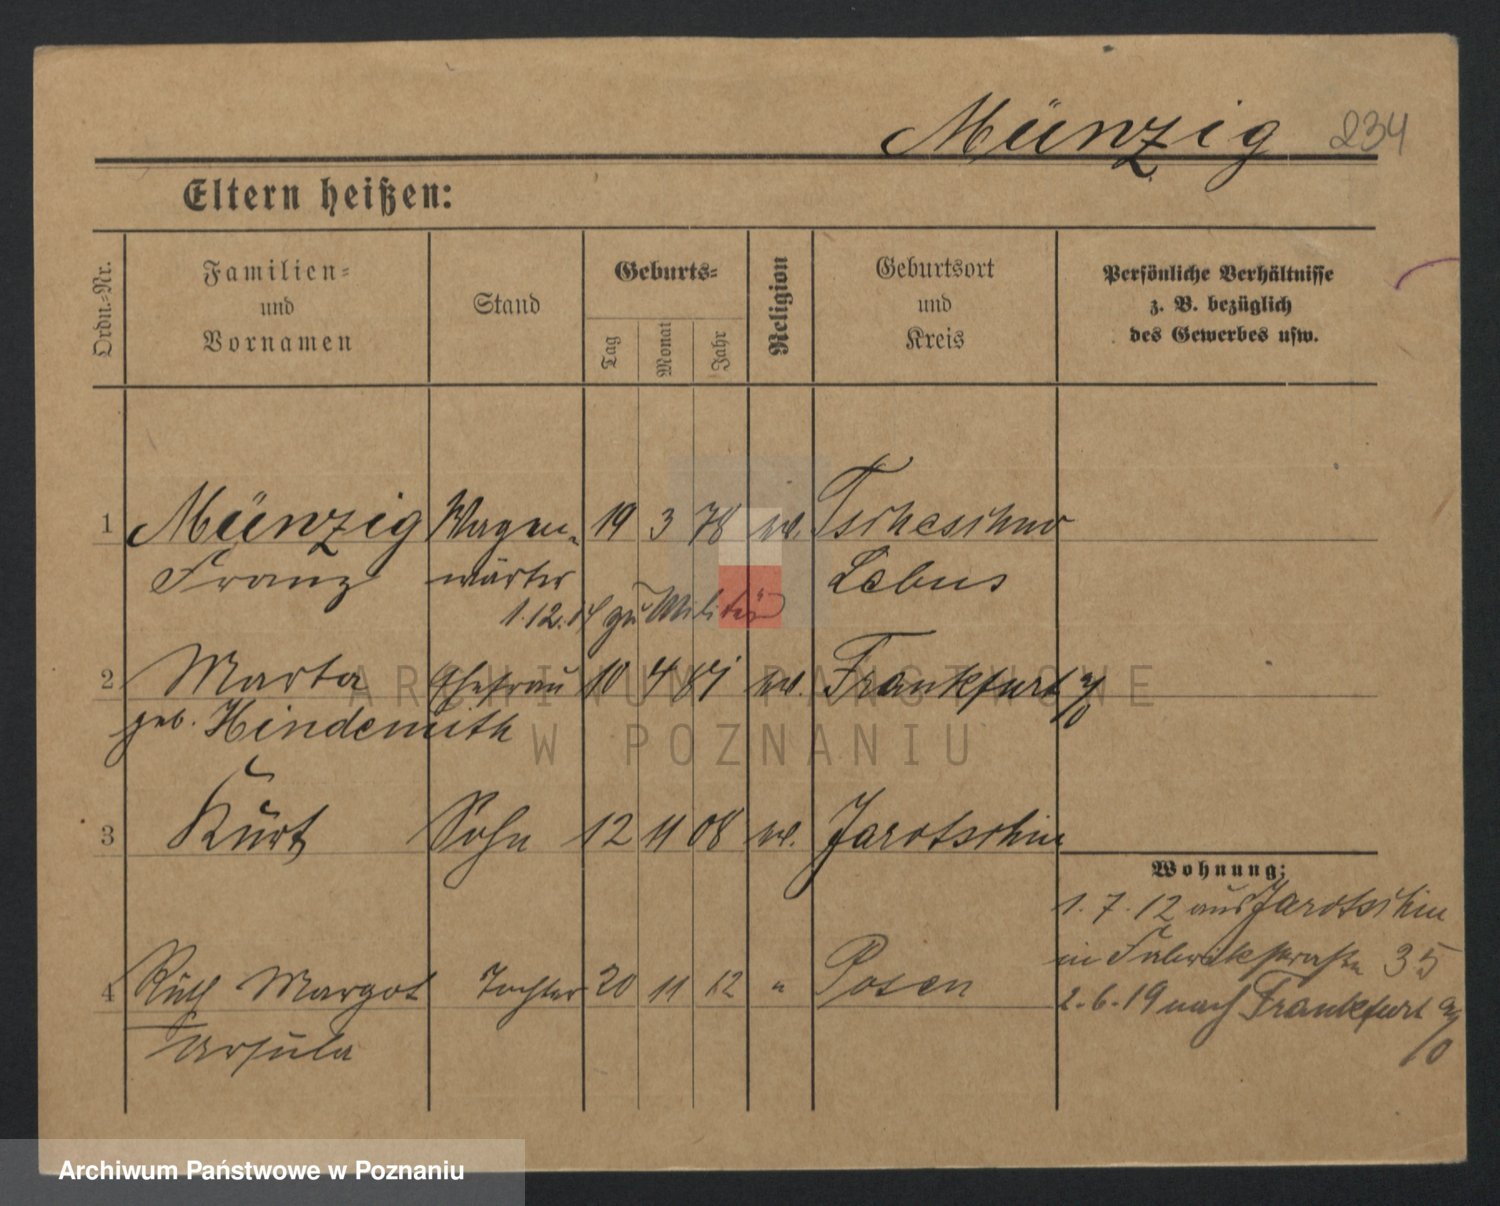 Münzig 234
Eltern heißen:
Ordn.-Nr.
Familien-
und
Vornamen
Stand
Geburts-
Tag
Monat
Jahr
Religion
Geburtsort
und
Kreis
Persönliche Verhältnisse
z. B. bezüglich
des Gewerbes usw.
1 Münzig Wagen- 19 3 78 ev. Tschetschnow
Franz wärter Lebus
1.12.14 zu Militär
2 Marta Ehefrau 10 4 81 ev. Frankfurt a/O
geb. Hindemith
3 Kurt Sohn 12 11 08 ev. Jarotschin
Wohnung:
1.7.12 aus Jarotschin
in Fabrikstraße 35
4 Ruth Margot Tochter 20 11 12 " Posen
2.6.19 nach Frankfurt a/O
Ursula
ARCHIWUM PAŃSTWOWE
W POZNANIU
Archiwum Państwowe w Poznaniu